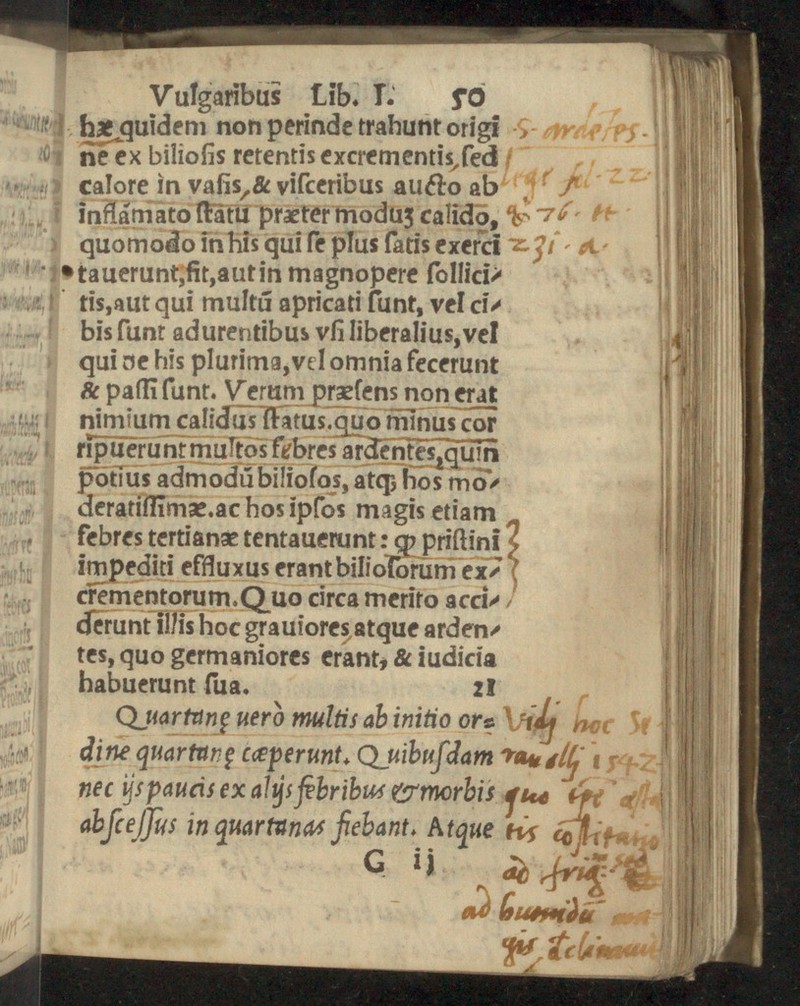 Vulgaribus Lib. I. 50
hæ quidem non perinde trahunt origi
ne ex biliosis retentis excrementis, sed
calore in vasis, & visceribus aucto ab
inflāmato statu præter moduʒ calido,
quomodo in his qui se plus satis exerci
tauerunt; fit, aut in magnopere sollici⸗
tis, aut qui multū apricati sunt, vel ci⸗
bis sunt adurentibus vsi liberalius, vel
qui de his plurima, vel omnia fecerunt
& passi sunt. Verum præsens non erat
nimium calidus status. quo minus cor
ripuerunt multos febres ardentes, quin
potius admodū biliosos, atq; hos mo⸗
deratissimæ. ac hos ipsos magis etiam
febres tertianæ tentauerunt: ꝙ pristini
impediti effluxus erant biliosorum ex⸗
crementorum. Quo circa merito acci⸗
derunt illis hoc grauiores atque arden⸗
tes, quo germaniores erant, & iudicia
habuerunt sua. 21
Quartanę uerò multis ab initio or⸗
dine quartanę cæperunt. Quibusdam
nec ijs paucis ex alijs febribus & morbis
abscessus in quartanas fiebant. Atque
G ij
ardētes.
Vidj hoc
1542